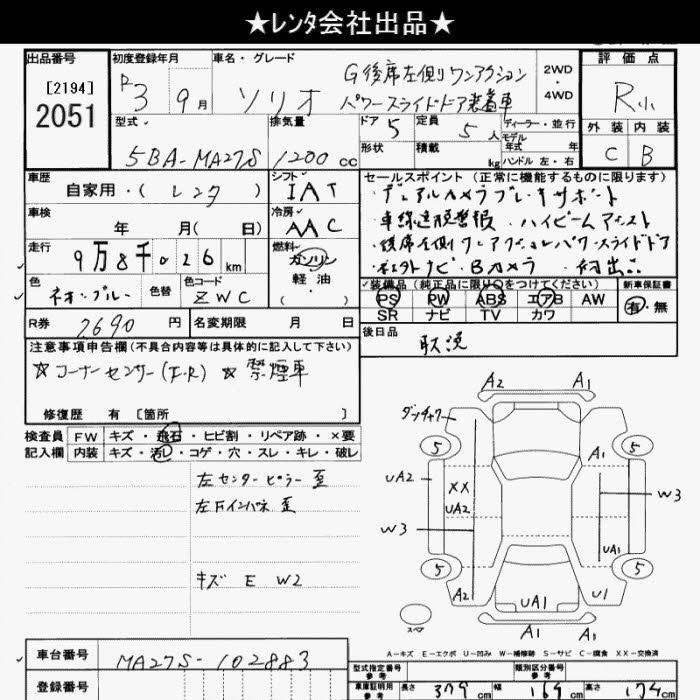 ★レンタ会社出品★
出品番号
[2194]
2051
初度登録年月
R3 9月
車名・グレード
ソリオ
G後席左側ワンアクション
パワースライドドア装着車
2WD
4WD
評価点
R小
外装 内装
C B
型式
5BA-MA27S
排気量
1200cc
ドア 5
形状
定員 5人
積載 kg
ディーラー・並行
モデル
年式 年
ハンドル 左・右
車歴
自家用・(レンタ)
シフト
IAT
車検
年 月( 日)
冷房
AAC
走行
9万8千026km
燃料
ガソリン
・
軽油
色
ネオンブルー
色替
色コード
ZWC
R券 7690円
名変期限 月 日
セールスポイント(正常に機能するものに限ります)
・デュアルカメラブレーキサポート
・車線逸脱警報 ・ハイビームアシスト
・後席左側ワンアクションパワースライドドア
ナビ ・Bカメラ
装備品(純正品に限り○をつけてください)
PS PW ABS エアB AW
SR ナビ TV カワ
新車保証書
有・無
後日品
取説
注意事項申告欄(不具合内容等は具体的に記入して下さい)
☆コーナーセンサー(F・R) ☆禁煙車
修復歴 有 [箇所 ]
検査員
記入欄
FW キズ・飛石・ヒビ割・リペア跡・×要
内装 キズ・汚レ・コゲ・穴・スレ・キレ・破レ
左センターピラー歪
左Fインパネ歪
キズ E W2
A2 A1
ダンチャク
5 5
A1
UA2
XX
UA2
W3
W3
UA1
5 5
A2
UA1
U1
A1 A1
スペア
A-キズ E-エクボ U-凹み W-補修跡 S-サビ C-腐食 XX-交換済
車台番号
MA27S-102883
登録番号
型式指定番号
参考
類別区分番号
参考
車庫証明用
参考
長さ 379cm 幅 164cm 高さ 174cm